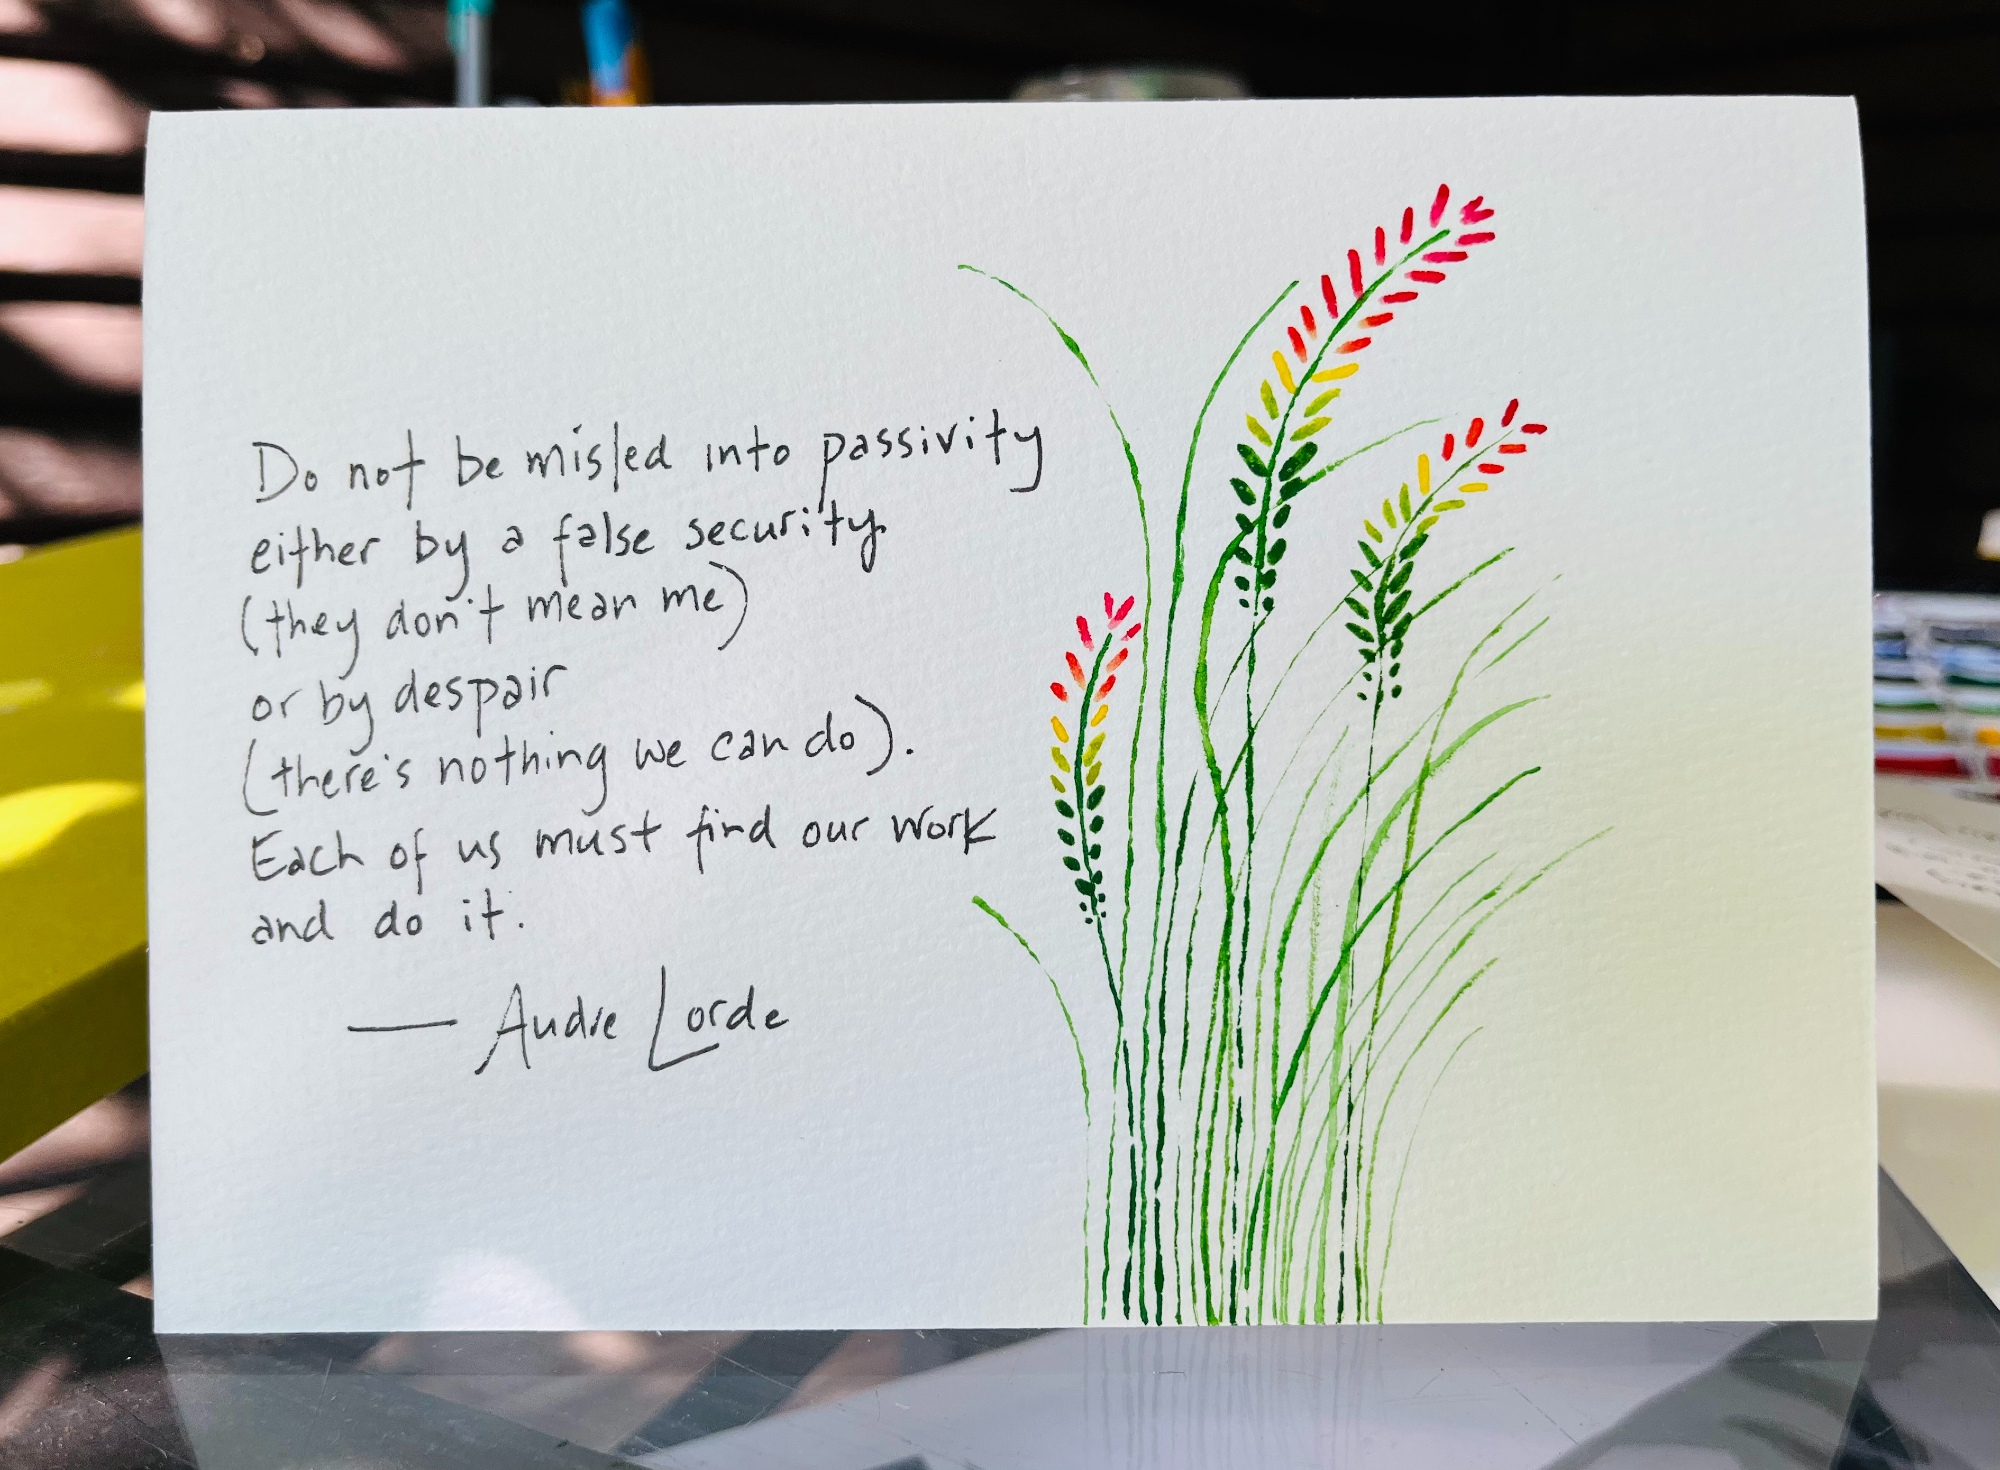 Do not be misled into passivity
either by a false security
(they don't mean me)
or by despair
(there's nothing we can do).
Each of us must find our work
and do it.
— Audre Lorde